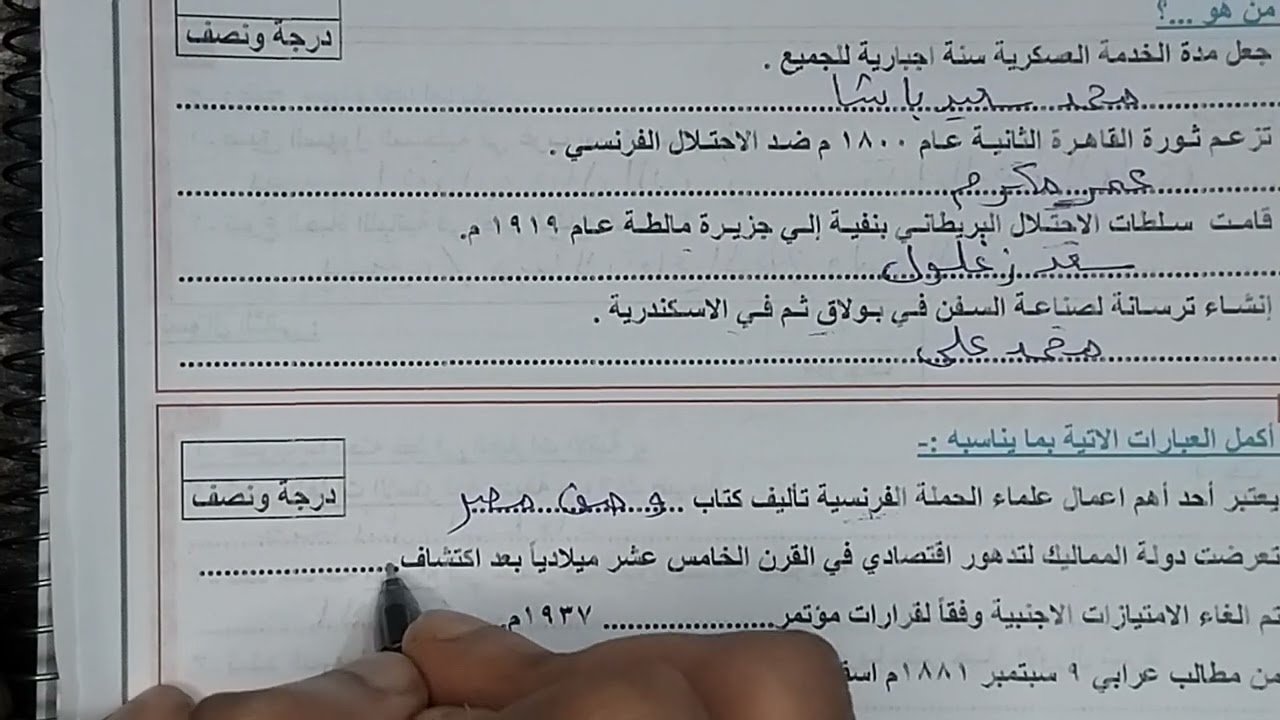 من هو ...؟
درجة ونصف
جعل مدة الخدمة العسكرية سنة اجبارية للجميع .
محمد سعيد باشا
تزعم ثورة القاهرة الثانية عام ١٨٠٠ م ضد الاحتلال الفرنسي .
عمر مكرم
قامت سلطات الاحتلال البريطاني بنفية إلي جزيرة مالطة عام ١٩١٩ م.
سعد زغلول
إنشاء ترسانة لصناعة السفن في بولاق ثم في الاسكندرية .
محمد علي
أكمل العبارات الاتية بما يناسبه :-
درجة ونصف
يعتبر أحد أهم اعمال علماء الحملة الفرنسية تأليف كتاب .. وصف مصر
تعرضت دولة المماليك لتدهور اقتصادي في القرن الخامس عشر ميلادياً بعد اكتشاف......................
تم الغاء الامتيازات الاجنبية وفقاً لقرارات مؤتمر...................... ١٩٣٧م.
من مطالب عرابي ٩ سبتمبر ١٨٨١م